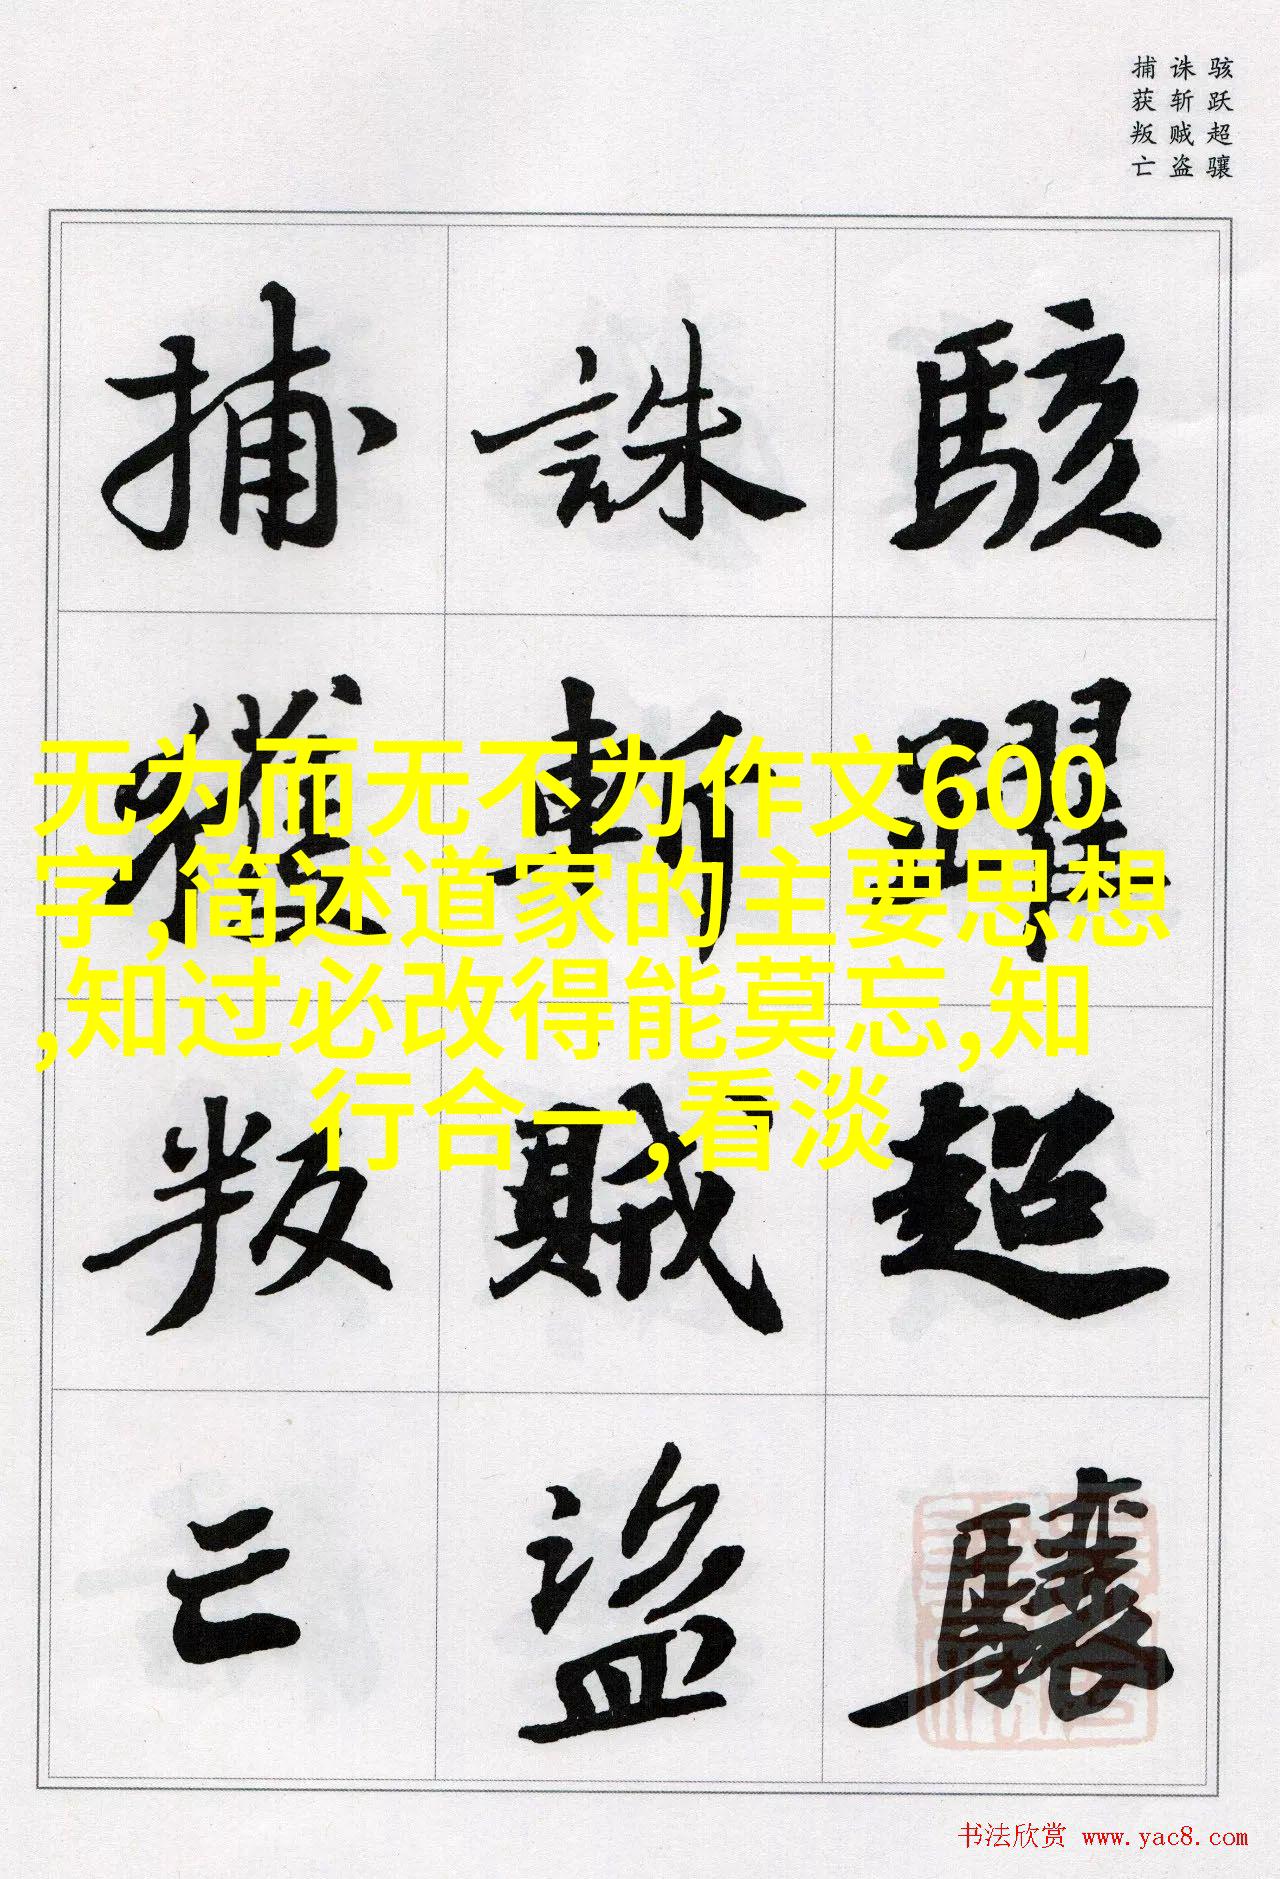 骇跃超骧
诛斩贼盗
捕获叛亡
駭躍超驤
誅斬賊盜
捕獲叛亡
无为而无不为作文600
字,简述道家的主要思想
,知过必改得能莫忘,知
行合一,看淡
书法欣赏 www.yac8.com